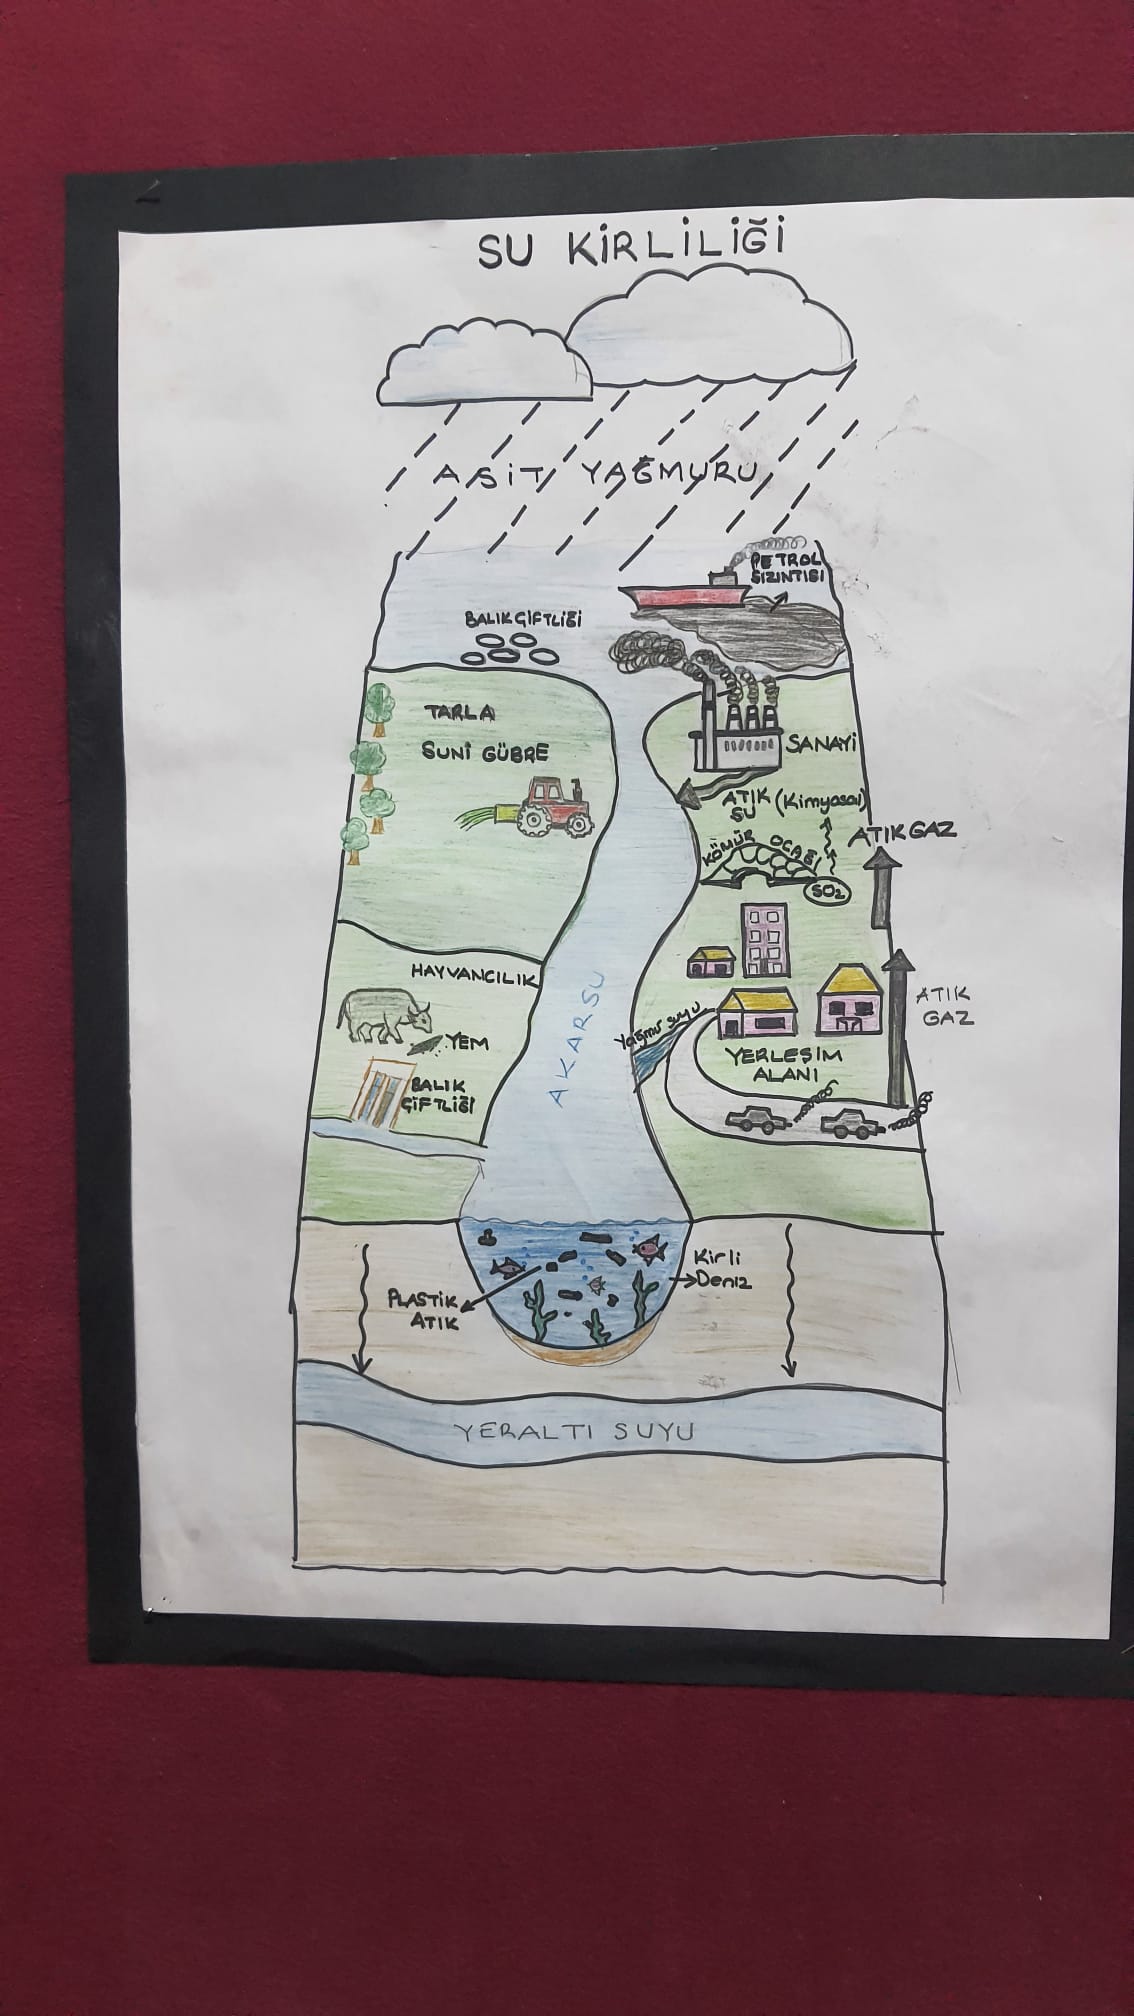 SU KİRLİLİĞİ
ASİT YAĞMURU
PETROL
SIZINTISI
BALIK ÇİFTLİĞİ
TARLA
SUNİ GÜBRE
SANAYİ
ATIK (Kimyasal)
SU
KÖMÜR OCAĞI
SO2
ATIK GAZ
HAYVANCILIK
YEM
BALIK
ÇİFTLİĞİ
AKARSU
Yağmur suyu
ATIK
GAZ
YERLEŞİM
ALANI
PLASTİK
ATIK
Kirli
Deniz
YERALTI SUYU